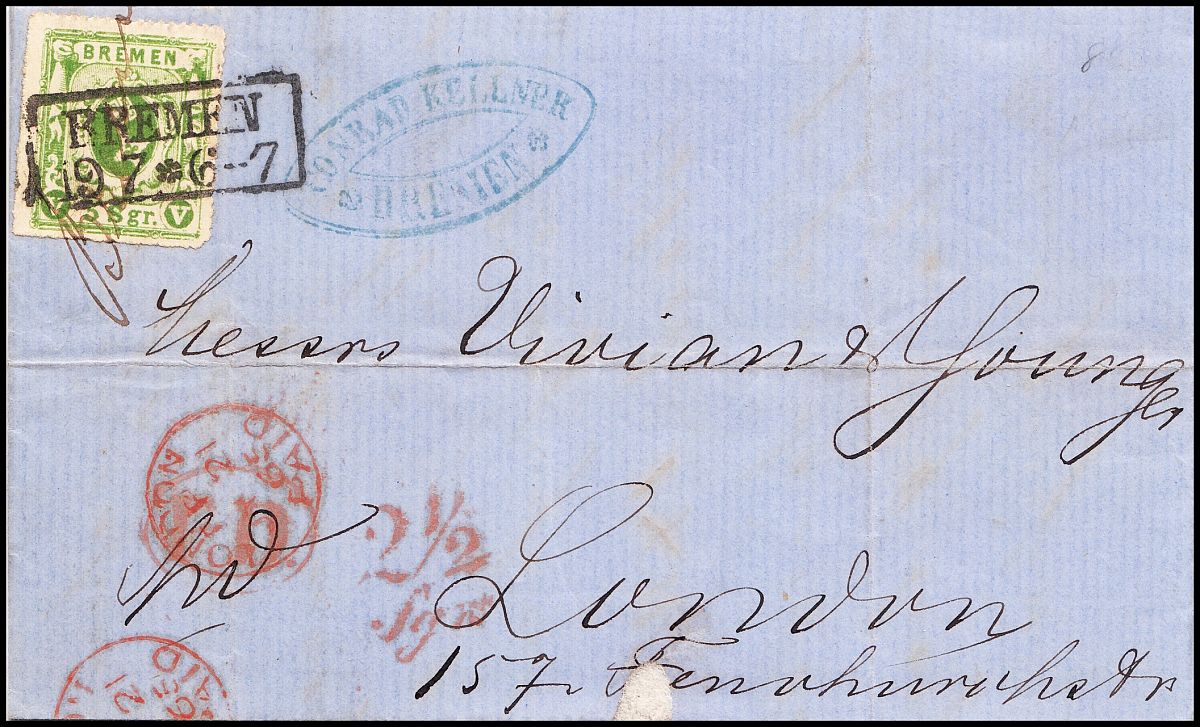 BREMEN
5 Sgr. V
BREMEN
19 7 * 6-7
CONRAD KELLNER
* BREMEN *
8
Messrs Vivian & Younger
LONDON
PAID
2½
sgr
London
157. Fenchurchstr
PAID